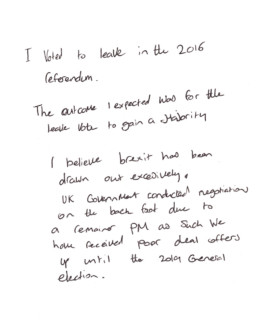 I Voted to leave in the 2016
referendum.
The outcome I expected was for the
leave vote to gain a Majority
I believe brexit has been
drawn out excessively.
UK Government conducted negotiations
on the back foot due to
a remainer PM as such we
have received poor deal offers
up until the 2019 General
election.